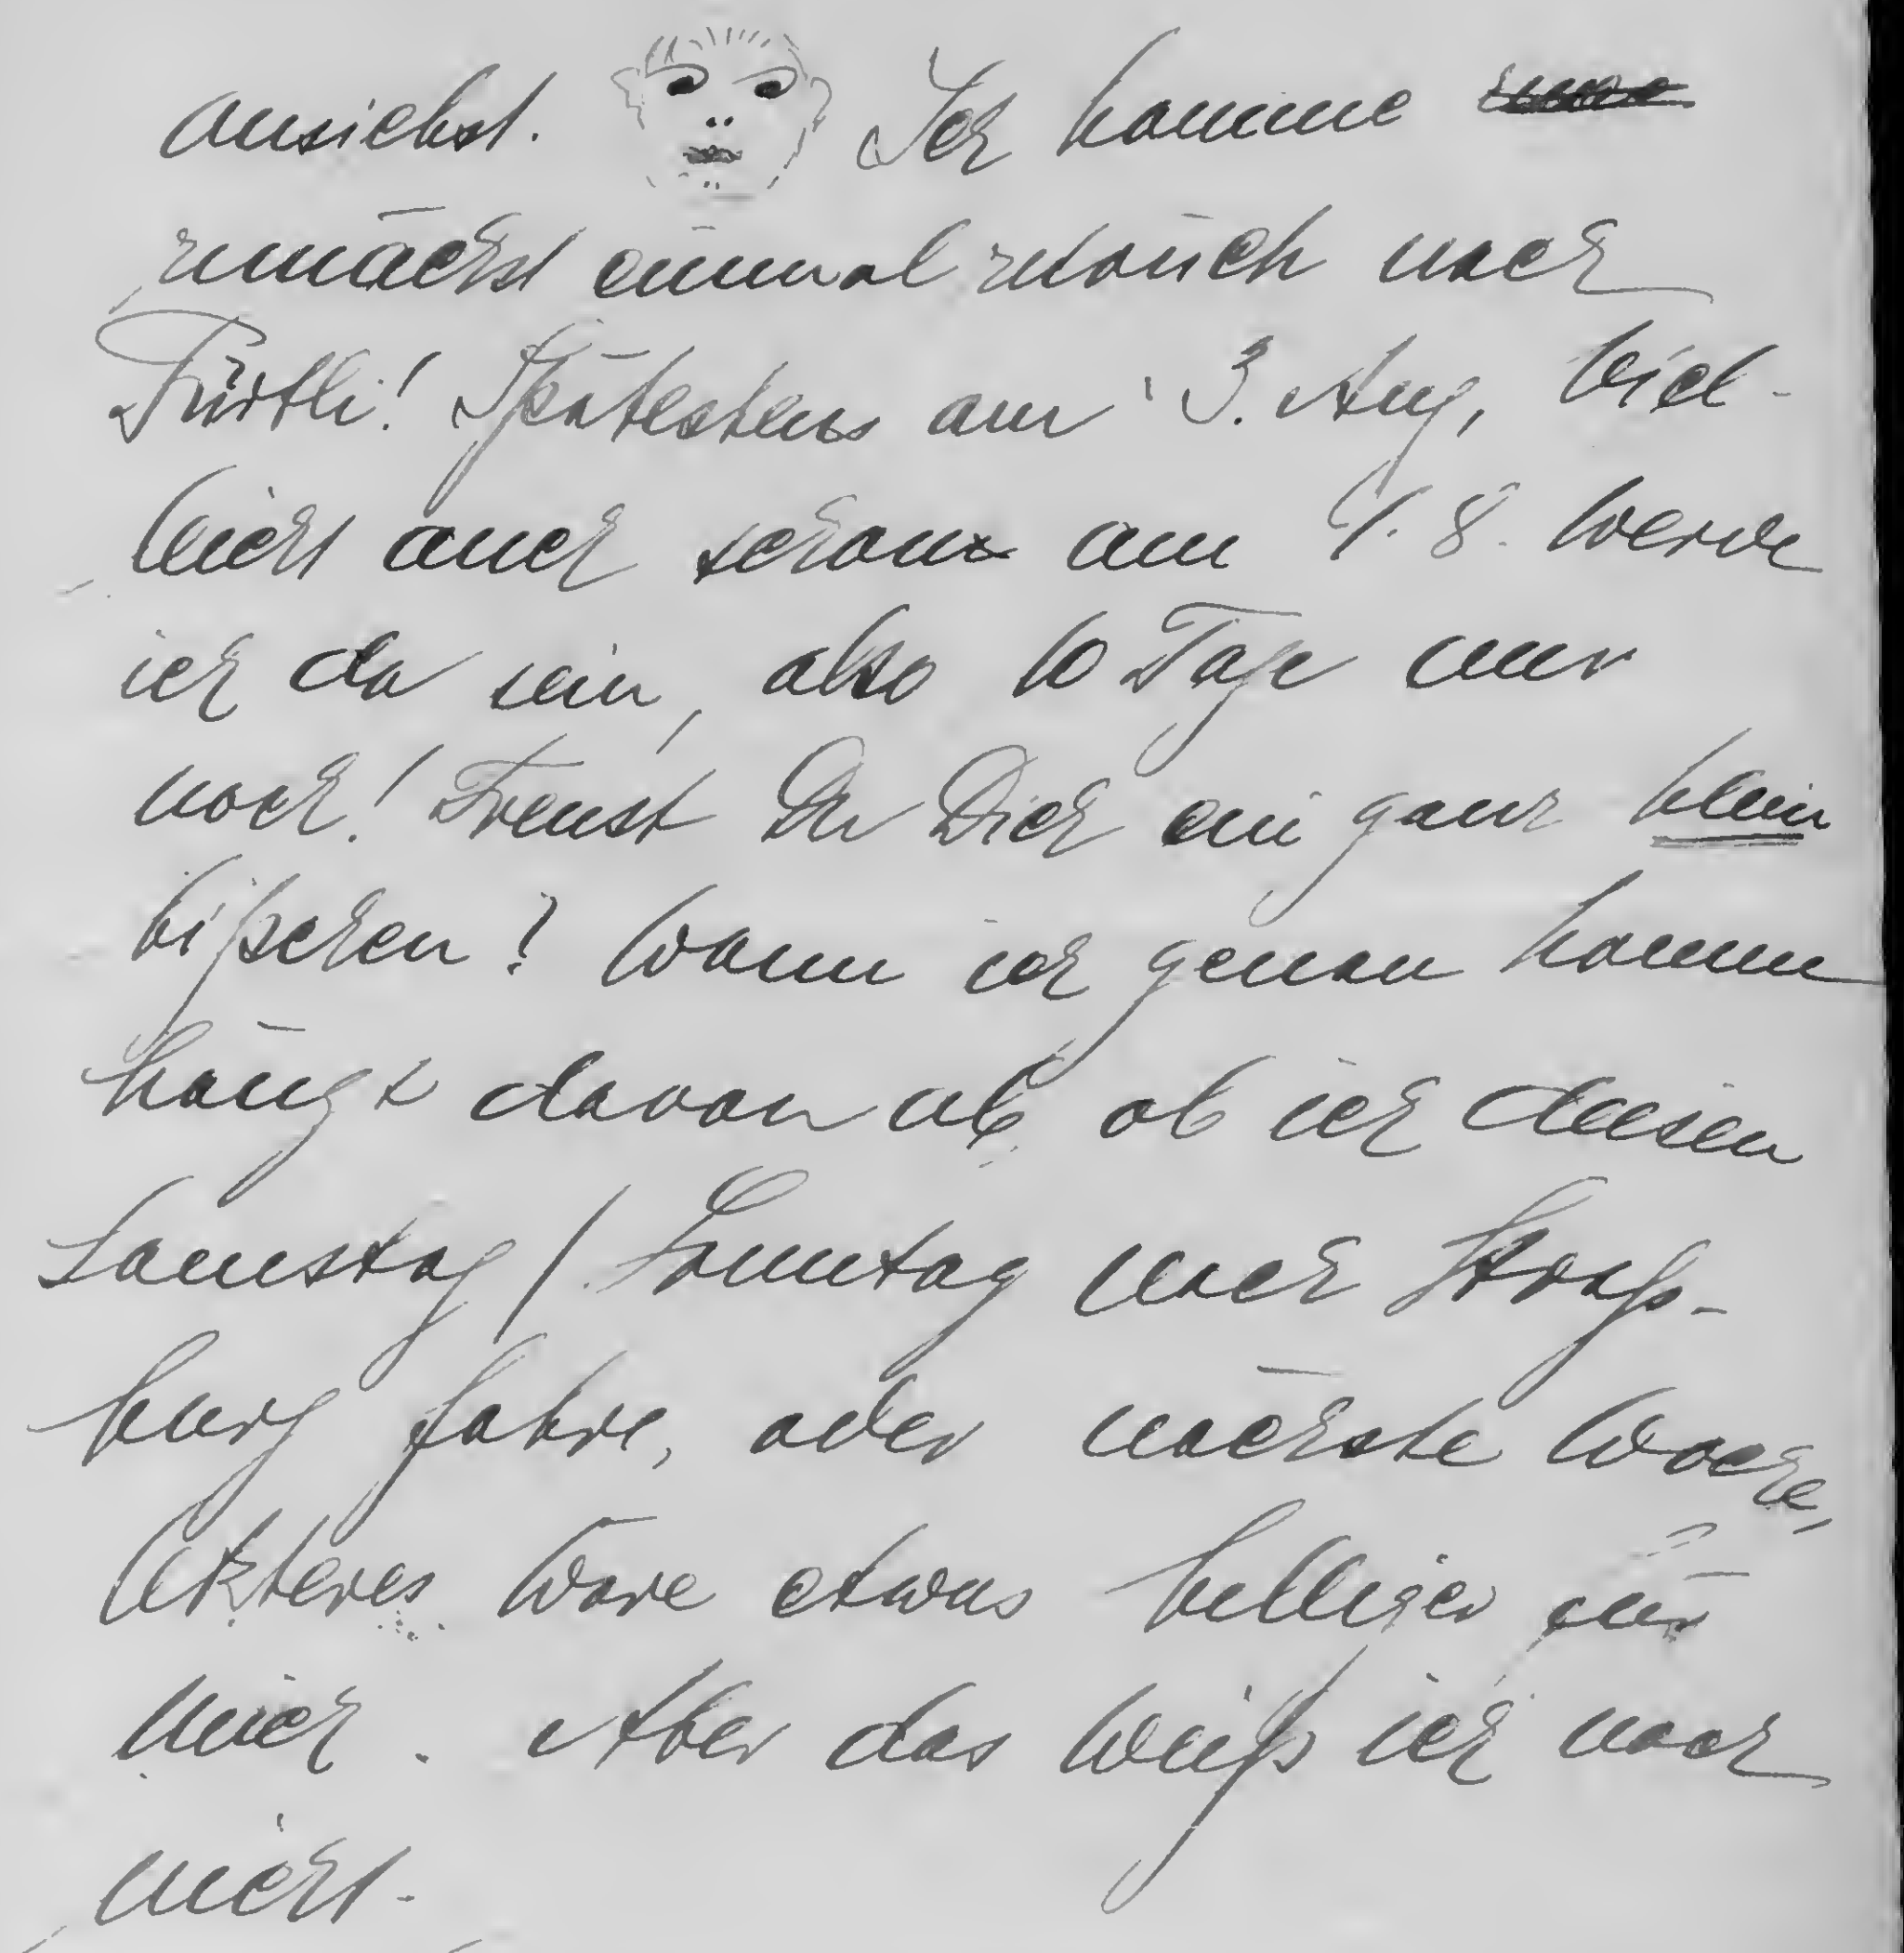 ansiehst. Ich komme
zunächst einmal zurück nach
Fürth! Spätestens am 3. Aug, viel-
leicht auch schon am 1. 8. werde
ich da sein, also 10 Tage nur
noch! Freust Du Dich ein ganz klein
bißchen? Wann ich genau komme
hängt davon ab, ob ich diesen
Samstag / Sonntag nach Straß-
burg fahre, oder nächste Woche,
letzteres wäre etwas billiger für
mich. Aber das weiß ich noch
nicht.